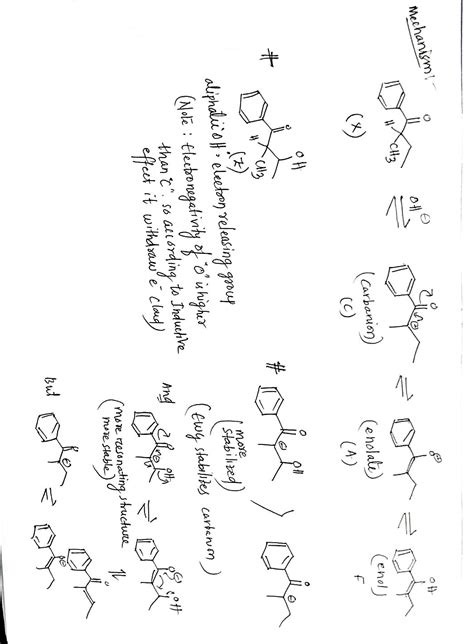 Mechanism:-
O
H
CH3
(X)
⇌
OH⊖
O
⊖
(carbanion)
(C)
⇌
O⊖
(enolate)
(A)
⇌
OH
(enol)
F
#
O
OH
H
CH3
(Z)
aliphatic OH = electron releasing group
(Note : Electronegativity of "O" is higher
than "C". so according to Inductive
effect it withdraw e-
#
O
OH
⊖
(more
stabilized)
>
O
⊖
(EWG stabilizes carbanion)
And
⇌
(more resonating structure
more stable)
But
⇌